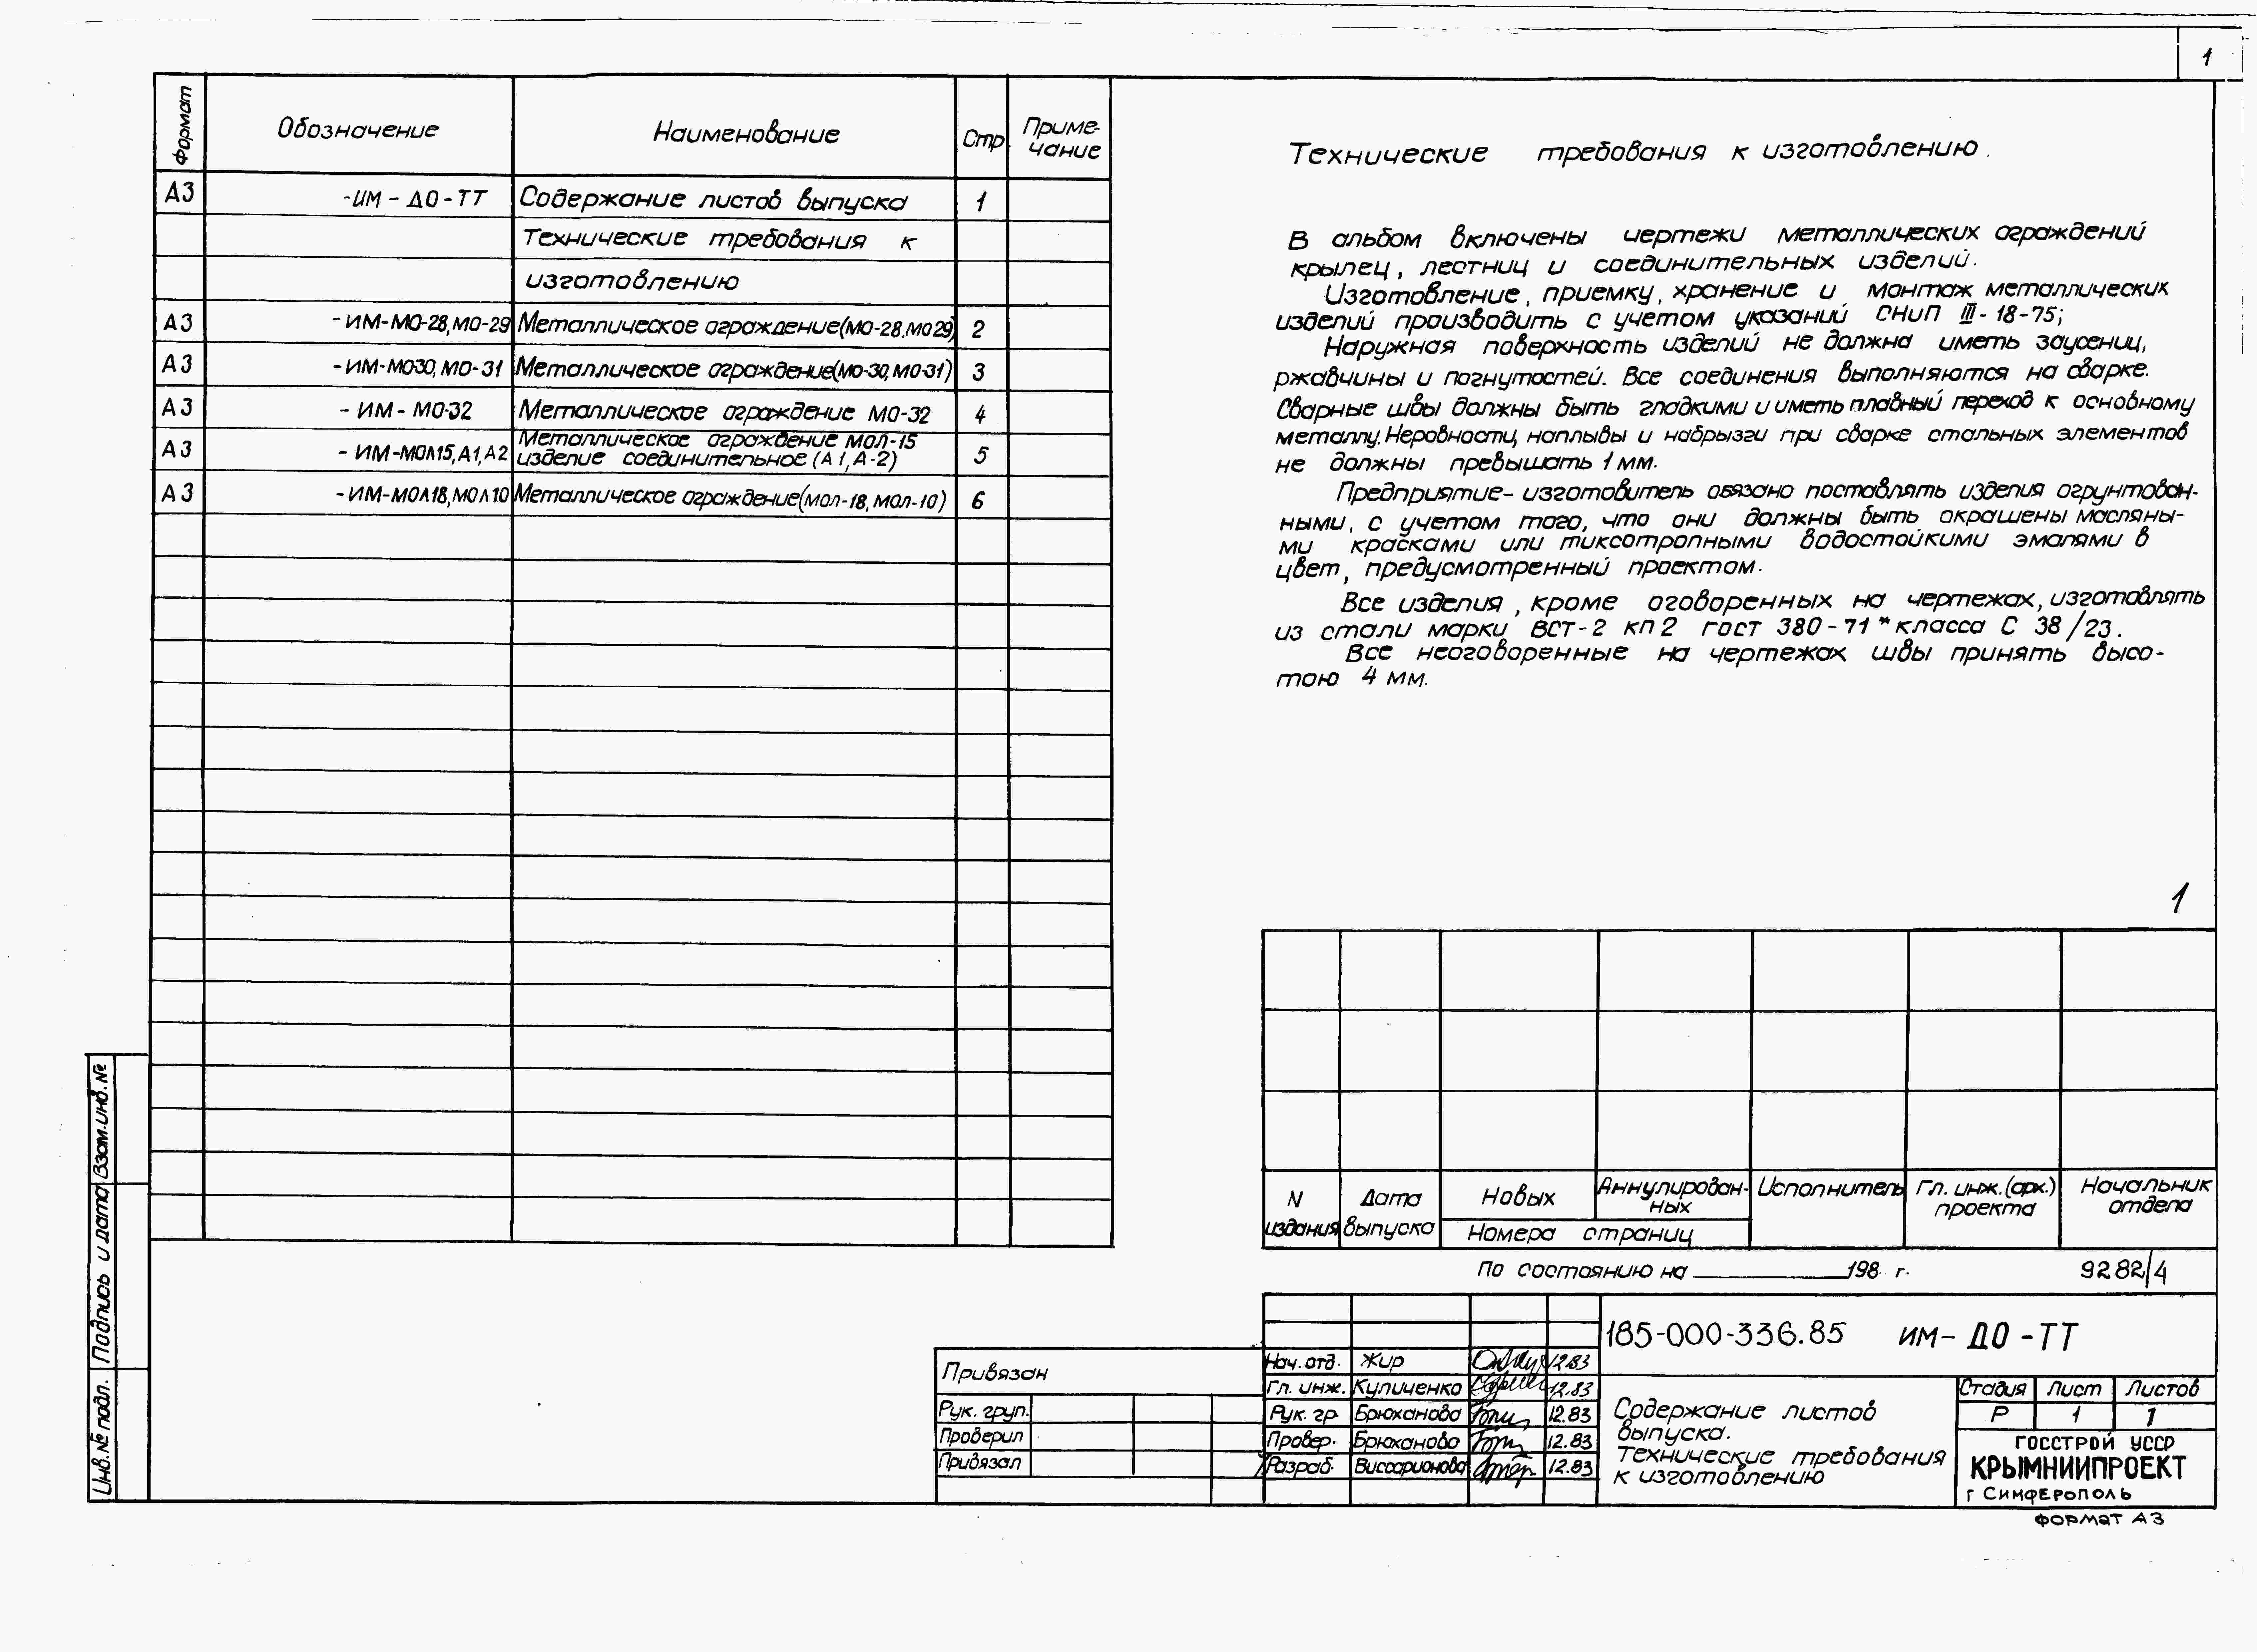 1
Формат
Обозначение
Наименование
Стр.
Приме-
чание
А3 -ИМ-ДО-ТТ Содержание листов выпуска 1
Технические требования к
изготовлению
А3 -ИМ-МО-28,МО-29 Металлическое ограждение(МО-28,МО29) 2
А3 -ИМ-МО30,МО-31 Металлическое ограждение(МО-30,МО-31) 3
А3 -ИМ-МО-32 Металлическое ограждение МО-32 4
А3 -ИМ-МОЛ15,А1,А2 Металлическое ограждение МОЛ-15
изделие соединительное (А1,А-2) 5
А3 -ИМ-МОЛ18,МОЛ10 Металлическое ограждение(МОЛ-18,МОЛ-10) 6
Технические требования к изготовлению.
В альбом включены чертежи металлических ограждений
крылец, лестниц и соединительных изделий.
Изготовление, приемку, хранение и монтаж металлических
изделий производить с учетом указаний СНиП III-18-75;
Наружная поверхность изделий не должна иметь заусениц,
ржавчины и погнутостей. Все соединения выполняются на сварке.
Сварные швы должны быть гладкими и иметь плавный переход к основному
металлу. Неровности, наплывы и набрызги при сварке стальных элементов
не должны превышать 1 мм.
Предприятие-изготовитель обязано поставлять изделия огрунтован-
ными, с учетом того, что они должны быть окрашены масляны-
ми красками или тиксотропными водостойкими эмалями в
цвет, предусмотренный проектом.
Все изделия, кроме оговоренных на чертежах, изготовлять
из стали марки ВСТ-2 кп2 ГОСТ 380-71* класса С 38/23.
Все неоговоренные на чертежах швы принять высо-
тою 4 мм.
1
N
издания
Дата
выпуска
Новых
Аннулирован-
ных
Номера страниц
Исполнитель
Гл. инж.(арх.)
проекта
Начальник
отдела
По состоянию на 198 г.
9282/4
185-000-336.85 ИМ-ДО-ТТ
Нач. отд. Жир 12.83
Гл. инж. Куличенко 12.83
Рук. гр. Брюханова 12.83
Провер. Брюханова 12.83
Разраб. Виссарионова 12.83
Содержание листов
выпуска.
Технические требования
к изготовлению
Стадия Лист Листов
Р 1 1
ГОССТРОЙ УССР
КРЫМНИИПРОЕКТ
г Симферополь
Формат А3
Привязан
Рук. груп.
Проверил
Привязал
Взам.инв.№
Подпись и дата
Инв.№ подл.